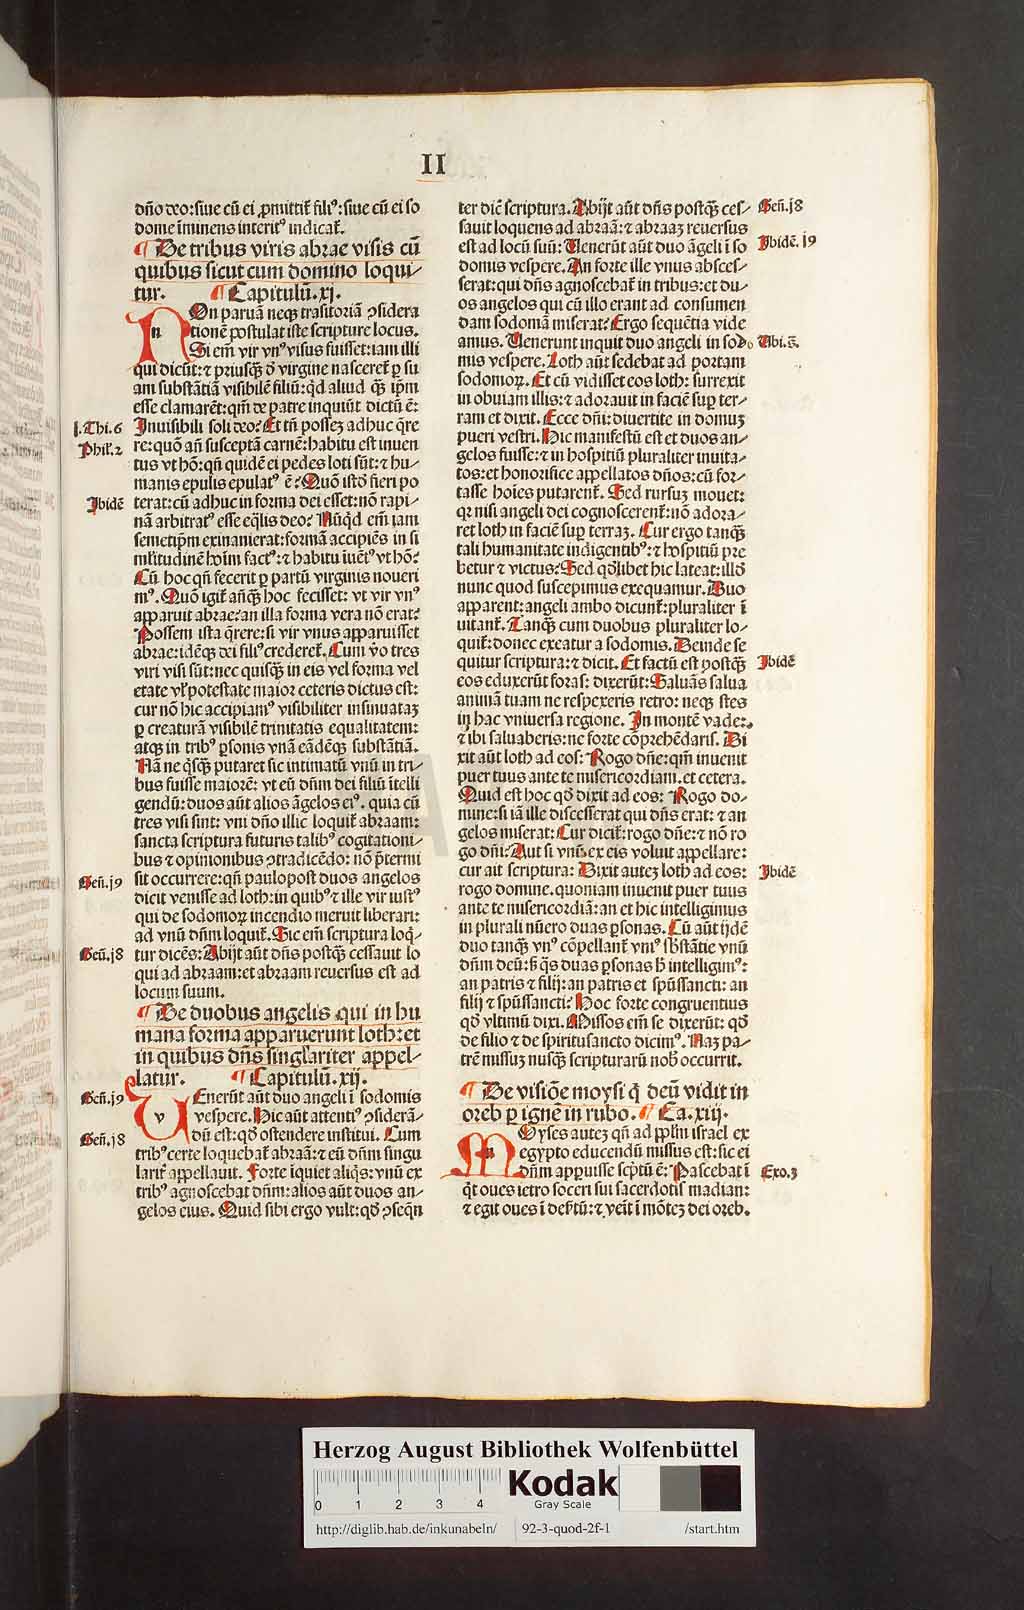 II
dño deo: siue cũ ei ꝓmittit̃ filiꝰ: siue cũ ei so
dome ĩminens interitꝰ indicat̃.
¶ De tribus viris abrae visis cũ
quibus sicut cum domino loqui⸗
tur. ¶ Capitulũ. xj.
NOn paruã neqꝫ trãsitoriã ꝯsidera
n
tionẽ postulat iste scripture locus.
Si em̃ vir vnꝰ visus fuisset: iam illi
qui dicũt: ⁊ priusqꝫ̃ d̃ virgine nasceret̃ ꝑ su
am substãtiã visibilẽ filiũ: qd̃ aliud qꝫ̃ ip̃m
esse clamarẽt: qm̃ de patre inquiũt dictũ ẽ:
j. Thi. 6
Inuisibili soli deo? Et tñ possez adhuc q̃re
Phil̃. 2
re: quõ añ susceptã carnẽ: habitu est inuen
tus vt hõ: qñ quidẽ ei pedes loti sũt: ⁊ hu⸗
manis epulis epulatꝰ ẽ? Quõ istd̃ fieri po
Ibidẽ
terat: cũ adhuc in forma dei esset: nõ rapi⸗
nã arbitratꝰ esse eq̃lis deo? Nũqd̃ em̃ iam
semetip̃m exinanierat: formã accipiẽs in si
militudinẽ hoĩm factꝰ: ⁊ habitu iuẽtꝰ vt hõ?
Cũ hoc qñ fecerit ꝑ partũ virginis noueri
mꝰ. Quõ igit̃ añqꝫ̃ hoc fecisset: vt vir vnꝰ
apparuit abrae? an illa forma vera nõ erat?
Possem ista q̃rere: si vir vnus apparuisset
abrae: idẽqꝫ dei filiꝰ crederet̃. Cum ṽo tres
viri visi sũt: nec quisqꝫ̃ in eis vel forma vel
etate vl̃ potestate maior ceteris dictus est:
cur nõ hic accipiamꝰ visibiliter insinuataz
ꝑ creaturã visibilẽ trinitatis equalitatem:
atqꝫ in tribꝰ ꝑsonis vnã eãdẽqꝫ substãtiã.
Nã ne q̃sqꝫ̃ putaret sic intimatũ vnũ in tri⸗
bus fuisse maiorẽ: vt eũ dñm dei filiũ ĩtelli
gendũ: duos aũt alios ãgelos eiꝰ. quia cũ
tres visi sint: vni dño illic loquit̃ abraam:
sancta scriptura futuris talibꝰ cogitationi⸗
bus ⁊ opinionibus ꝯtradicẽdo: nõ p̃termi
Geñ. j9
sit occurrere: qñ paulopost duos angelos
dicit venisse ad loth: in quibꝰ ⁊ ille vir iustꝰ
qui de sodomoꝝ incendio meruit liberari:
ad vnũ dñm loquit̃. Sic em̃ scriptura loq̃⸗
Geñ. j8
tur dicẽs: Abijt aũt dñs postqꝫ̃ cessauit lo
qui ad abraam: et abraam reuersus est ad
locum suum.
¶ De duobus angelis qui in hu
mana forma apparuerunt loth: et
in quibus dñs singl̃ariter appel⸗
latur. ¶ Capitulũ. xij.
Geñ. j9
VEnerũt aũt duo angeli ĩ sodomis
v
vespere. Hic aũt attentiꝰ ꝯsiderã⸗
Geñ. j8
dũ est: qd̃ ostendere institui. Cum
tribꝰ certe loquebat̃ abraã: ⁊ eũ dñm singu
larit̃ appellauit. Forte ĩquiet aliq̃s: vnũ ex
tribꝰ agnoscebat dñm: alios aũt duos an⸗
gelos eius. Quid sibi ergo vult: qd̃ ꝯseqñ
ter diẽ scriptura. Abijt aũt dñs postqꝫ̃ ces⸗
Geñ. j8
sauit loquens ad abraã: ⁊ abraaz reuersus
est ad locũ suũ: Venerũt aũt duo ãgeli ĩ so
Ibidẽ. j9
domis vespere. An forte ille vnus absces⸗
serat: qui dñs agnoscebat̃ in tribus: et du⸗
os angelos qui cũ illo erant ad consumen
dam sodomã miserat? Ergo sequẽtia vide
amus. Venerunt inquit duo angeli in sodo
Vbi. s̃.
mis vespere. Loth aũt sedebat ad portam
sodomoꝝ. Et cũ vidisset eos loth: surrexit
in obuiam illis: ⁊ adorauit in faciẽ suꝑ ter⸗
ram et dixit. Ecce dñi: diuertite in domuz
pueri vestri. Hic manifestũ est et duos an⸗
gelos fuisse: ⁊ in hospitiũ pluraliter inuita⸗
tos: et honorifice appellatos dños: cũ for⸗
tasse hoĩes putarent̃. Sed rursuz mouet:
qꝛ nisi angeli dei cognoscerent̃: nõ adora⸗
ret loth in faciẽ suꝑ terraz. Cur ergo tanqꝫ̃
tali humanitate indigentibꝰ: ⁊ hospitiũ pre
betur ⁊ victus? Sed qd̃libet hic lateat: illd̃
nunc quod suscepimus exequamur. Duo
apparent: angeli ambo dicunt̃: pluraliter ĩ
uitant̃. Tanqꝫ̃ cum duobus pluraliter lo⸗
quit̃: donec exeatur a sodomis. Deinde se
quitur scriptura: ⁊ dicit. Et factũ est postqꝫ̃
Ibidẽ
eos eduxerũt foras: dixerũt: Saluãs salua
animã tuam ne respexeris retro: neqꝫ stes
in hac vniuersa regione. In montẽ vade:
⁊ ibi saluaberis: ne forte cõprehẽdaris. Di
xit aũt loth ad eos: Rogo dñe: qm̃ inuenit
puer tuus ante te misericordiam. et cetera.
Quid est hoc qd̃ dixit ad eos: Rogo do⸗
mine: si iã ille discesserat qui dñs erat: ⁊ an
gelos miserat: Cur dicit̃: rogo dñe: ⁊ nõ ro
go dñi? Aut si vnũ ex eis voluit appellare:
cur ait scriptura: Dixit autez loth ad eos:
Ibidẽ
rogo domine. quoniam inuenit puer tuus
ante te misericordiã: an et hic intelligimus
in plurali nũero duas ꝑsonas. Cũ aũt ijdẽ
duo tanqꝫ̃ vnꝰ cõpellant̃ vniꝰ sb̃stãtie vnũ
dñm deũ: s̃ q̃s duas ꝑsonas h̃ intelligimꝰ:
an patris ⁊ filij: an patris et spũssancti: an
filij ⁊ spũssancti? Hoc forte congruentius
qd̃ vltimũ dixi. Missos em̃ se dixerũt: qd̃
de filio ⁊ de spiritusancto dicimꝰ. Naz pa⸗
trẽ missuz nusqꝫ̃ scripturarũ nob̃ occurrit.
¶ De visiõe moysi q̃ deũ vidit in
oreb ꝑ ignẽ in rubo. ¶ Ca. xiij.
MOyses autez qñ ad ppl̃m israel ex
m
egypto educendũ missus est: sic ei
dñm appuisse scp̃tũ ẽ: Pascebat ĩ
Exo. 3
q̃t oues ietro soceri sui sacerdotis madian:
⁊ egit oues ĩ desr̃tũ: ⁊ veñit ĩ mõtez dei oreb.
Herzog August Bibliothek Wolfenbüttel
0 1 2 3 4
Kodak
Gray Scale
http://diglib.hab.de/inkunabeln/ 92-3-quod-2f-1 /start.htm